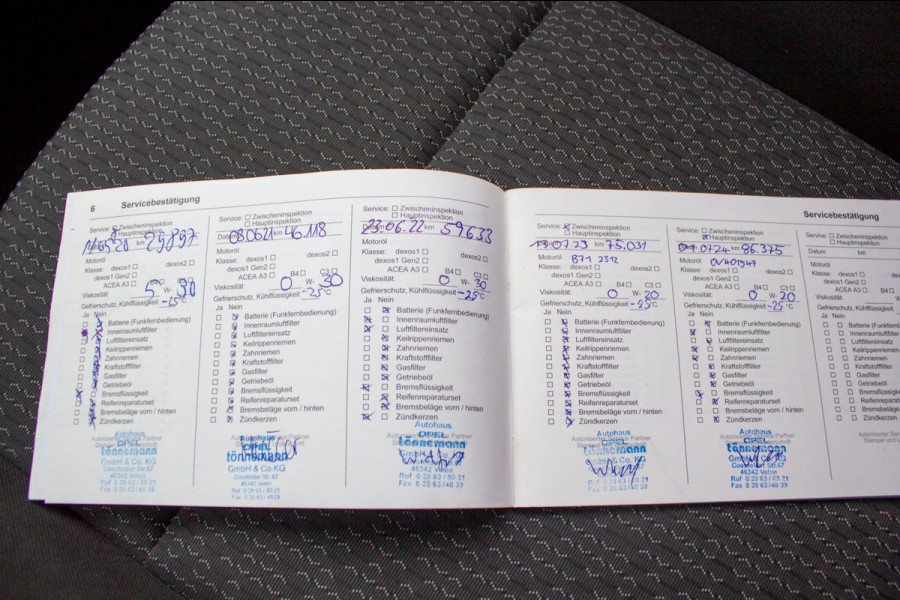 6 Servicebestätigung
Service: Zwischeninspektion
Hauptinspektion
29.897
Motoröl
Klasse: dexos1 dexos2
dexos1 Gen2
ACEA A3 B4 C3
Viskosität: 5 W- 30
Gefrierschutz, Kühlflüssigkeit -25°C
Ja Nein
Batterie (Funkfernbedienung)
Innenraumluftfilter
Luftfiltereinsatz
Keilrippenriemen
Zahnriemen
Kraftstofffilter
Gasfilter
Getriebeöl
Bremsflüssigkeit
Reifenreparaturset
Bremsbeläge vorn / hinten
Zündkerzen
Autohaus
OPEL
tönnemann
GmbH & Co.KG
Coesfelder Str.67
46342 Velen
Ruf 0 28 63 / 80 21
Fax 0 28 63 / 48 39
Service: Zwischeninspektion
Hauptinspektion
Datum 08.06.21 km 46.118
Motoröl
Klasse: dexos1 dexos2
dexos1 Gen2
ACEA A3 B4 C3
Viskosität: 0 W- 30
Gefrierschutz, Kühlflüssigkeit -25°C
Ja Nein
Batterie (Funkfernbedienung)
Innenraumluftfilter
Luftfiltereinsatz
Keilrippenriemen
Zahnriemen
Kraftstofffilter
Gasfilter
Getriebeöl
Bremsflüssigkeit
Reifenreparaturset
Bremsbeläge vorn / hinten
Zündkerzen
Autohaus
OPEL
tönnemann
GmbH & Co.KG
Coesfelder Str.67
46342 Velen
Ruf 0 28 63 / 80 21
Fax 0 28 63 / 48 39
Service: Zwischeninspektion
Hauptinspektion
23.06.22 km 59.633
Motoröl
Klasse: dexos1 dexos2
dexos1 Gen2
ACEA A3 B4 C3
Viskosität: 0 W- 30
Gefrierschutz, Kühlflüssigkeit -25°C
Ja Nein
Batterie (Funkfernbedienung)
Innenraumluftfilter
Luftfiltereinsatz
Keilrippenriemen
Zahnriemen
Kraftstofffilter
Gasfilter
Getriebeöl
Bremsflüssigkeit
Reifenreparaturset
Bremsbeläge vorn / hinten
Zündkerzen
Autohaus
OPEL
tönnemann
GmbH & Co.KG
46342 Velen
Ruf 0 28 63 / 80 21
Fax 0 28 63 / 48 39
Servicebestätigung
Service: Zwischeninspektion
Hauptinspektion
07.23 km 75.031
Motoröl B71 2312
Klasse: dexos1 dexos2
dexos1 Gen2
ACEA A3 B4 C3
Viskosität: 0 W- 20
Gefrierschutz, Kühlflüssigkeit -25°C
Ja Nein
Batterie (Funkfernbedienung)
Innenraumluftfilter
Luftfiltereinsatz
Keilrippenriemen
Zahnriemen
Kraftstofffilter
Gasfilter
Getriebeöl
Bremsflüssigkeit
Reifenreparaturset
Bremsbeläge vorn / hinten
Zündkerzen
Autohaus
OPEL
tönnemann
46342 Velen
Ruf 0 28 63 / 80 21
Fax 0 28 63 / 48 39
Service: Zwischeninspektion
Hauptinspektion
07.24 km 86.375
Motoröl OV401547
Klasse: dexos1 dexos2
dexos1 Gen2
ACEA A3 B4 C3
Viskosität: 0 W- 20
Gefrierschutz, Kühlflüssigkeit -25°C
Ja Nein
Batterie (Funkfernbedienung)
Innenraumluftfilter
Luftfiltereinsatz
Keilrippenriemen
Zahnriemen
Kraftstofffilter
Gasfilter
Getriebeöl
Bremsflüssigkeit
Reifenreparaturset
Bremsbeläge vorn / hinten
Zündkerzen
Autohaus
OPEL
tönnemann
GmbH & Co.KG
46342 Velen
Ruf 0 28 63 / 80 21
Fax 0 28 63 / 48 39
Service: Zwischeninspektion
Hauptinspektion
Datum km
Motoröl
Klasse: dexos1
dexos1 Gen2
ACEA A3
Viskosität:
Gefrierschutz, Kühlflüssigkeit
Ja Nein
Batterie
Innenraumluftfilter
Luftfiltereinsatz
Keilrippenriemen
Zahnriemen
Kraftstofffilter
Gasfilter
Getriebeöl
Bremsflüssigkeit
Zündkerzen